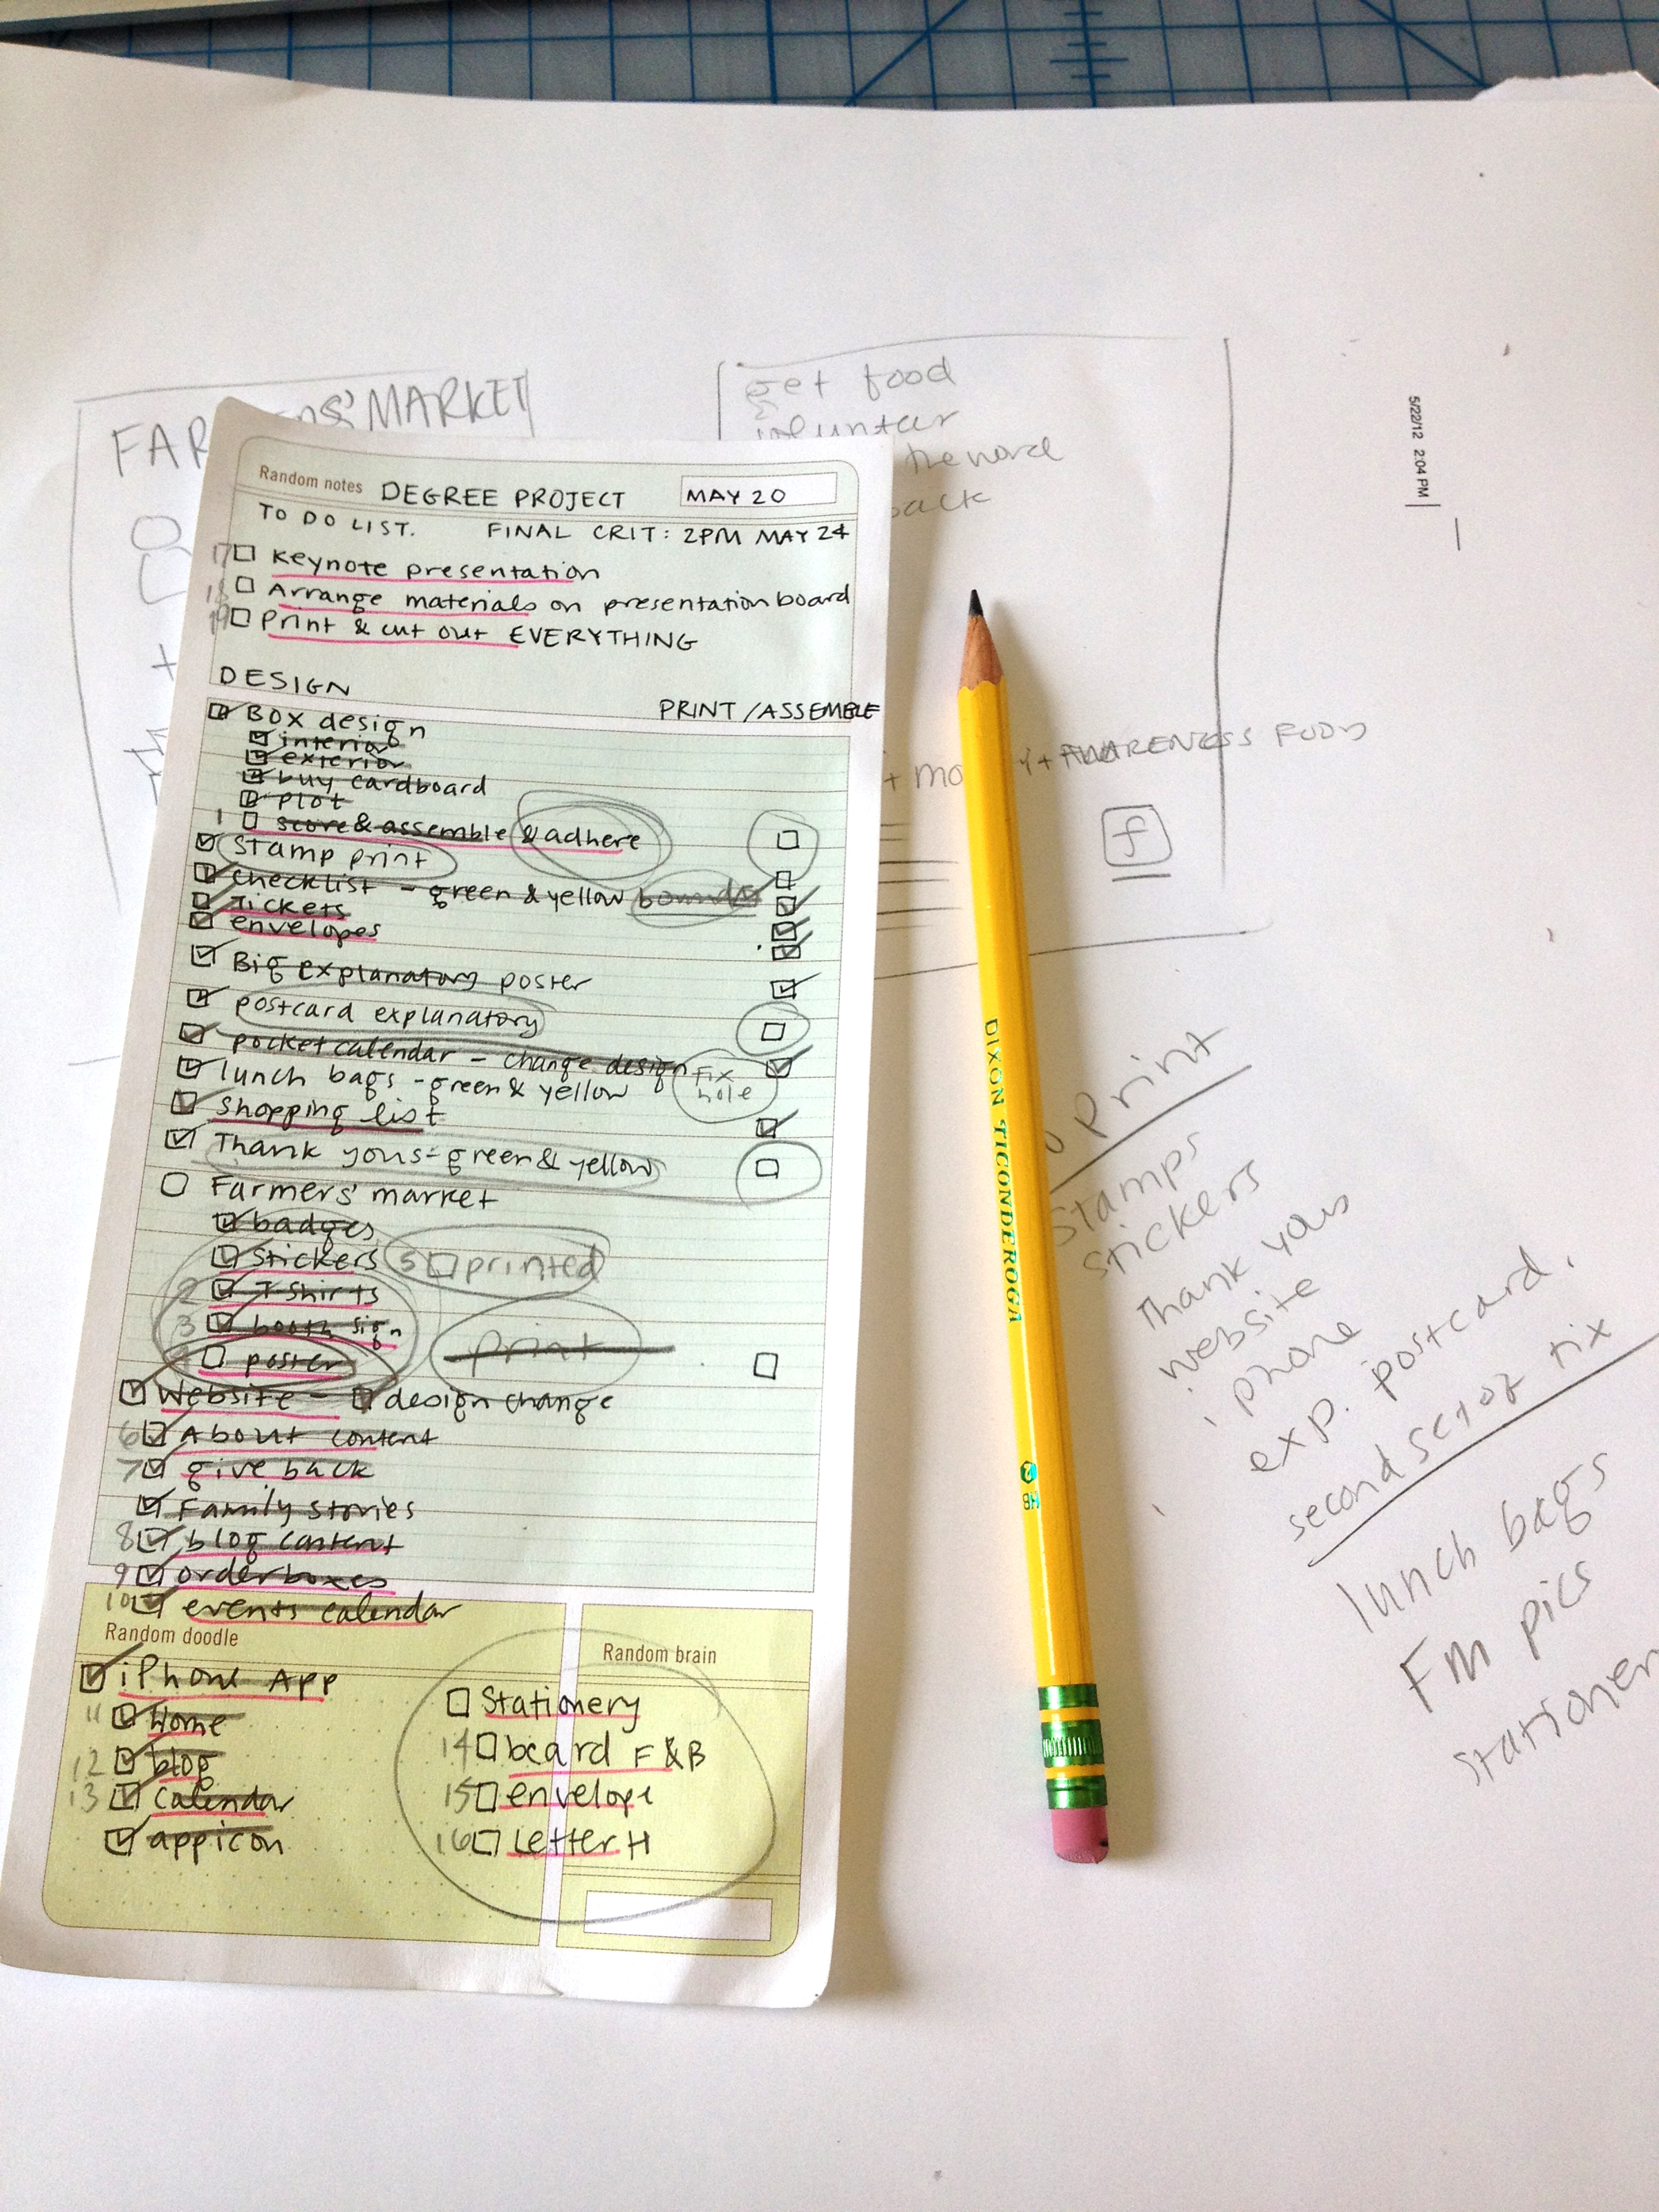 FARMERS' MARKET
get food
volunteer
the word
back
5/22/12 2:04 PM
Random notes DEGREE PROJECT MAY 20
TO DO LIST. FINAL CRIT: 2PM MAY 24
17 Keynote presentation
18 Arrange materials on presentation board
19 Print & cut out EVERYTHING
DESIGN
PRINT/ASSEMBLE
Box design
interior
exterior
buy cardboard
plot
1 score & assemble & adhere
Stamp print
checklist - green & yellow
Tickets
envelopes
Big explanatory poster
postcard explanatory
pocket calendar - change design
lunch bags - green & yellow fix hole
Shopping list
Thank yous - green & yellow
Farmers' market
badges
Stickers 5 printed
2 T-Shirts
3 booth sign
poster print
Website - design change
6 About content
7 give back
Family stories
8 blog content
9 order boxes
10 events calendar
Random doodle
Random brain
iPhone App
11 Home
12 blog
13 calendar
app icon
Stationery
14 bcard F & B
15 envelope
16 Letter H
+ AWARENESS
f
DIXON TICONDEROGA 2 HB
print
Stamps
stickers
Thank yous
website
iphone
exp. postcard.
second set of tix
lunch bags
FM pics
stationer